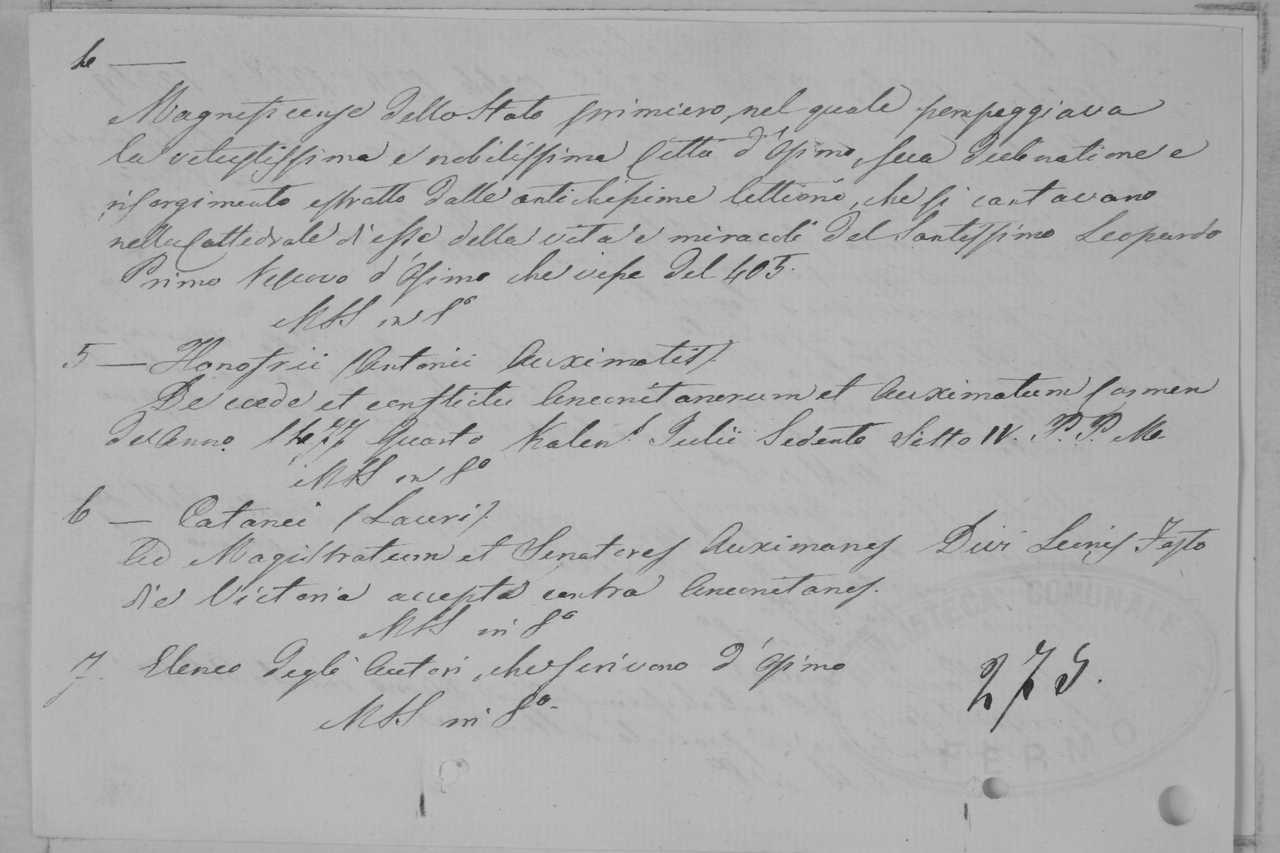 4 —
Magnificenze dello Stato primiero, nel quale pompeggiava
la vetustissima e nobilissima Città d'Osimo, sua declinatione e
risorgimento estratto dalle antichissime lettioni, che si cantavano
nella Cattedrale di essa della vita e miracoli del Santissimo Leopardo
Primo Vescovo d'Osimo che visse del 405.
MSS in 8º
5 — Honofrii (Antonii Auximatis)
De caede et conflictu Anconitanorum et Auximatum Carmen
de Anno 1477 Quarto Kalen. Julii Sedente Sisto IV. P. P. M.
MSS in 8º
6 — Catanei (Lauri)
Ad Magistratum et Senatores Auximanes Divi Leonis Festo
die Victoria accepta contra Anconitanos.
MSS in 8º
7. Elenco degli Autori, che scrivono d'Osimo
MSS in 8º
275.
BIBLIOTECA COMUNALE
FERMO